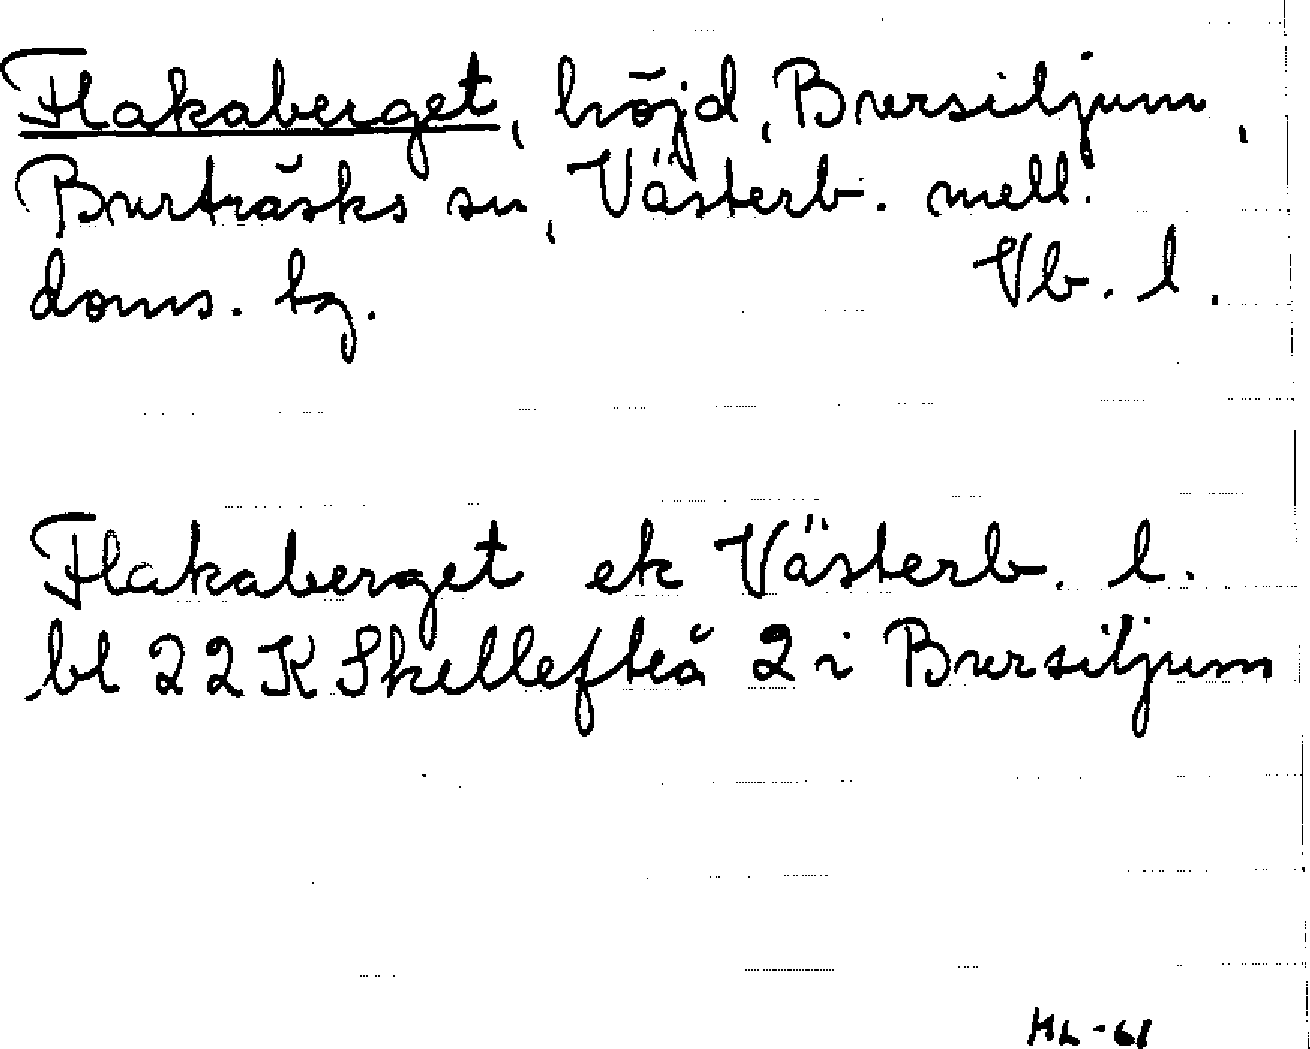 Flakaberget, höjd, Bursiljum,
Burträsks sn, Västerb. mell.
doms. hg. Vb. l.
Flakaberget ek Västerb. l.
bl 22 K Skellefteå 2 i Bursiljum
HL-61